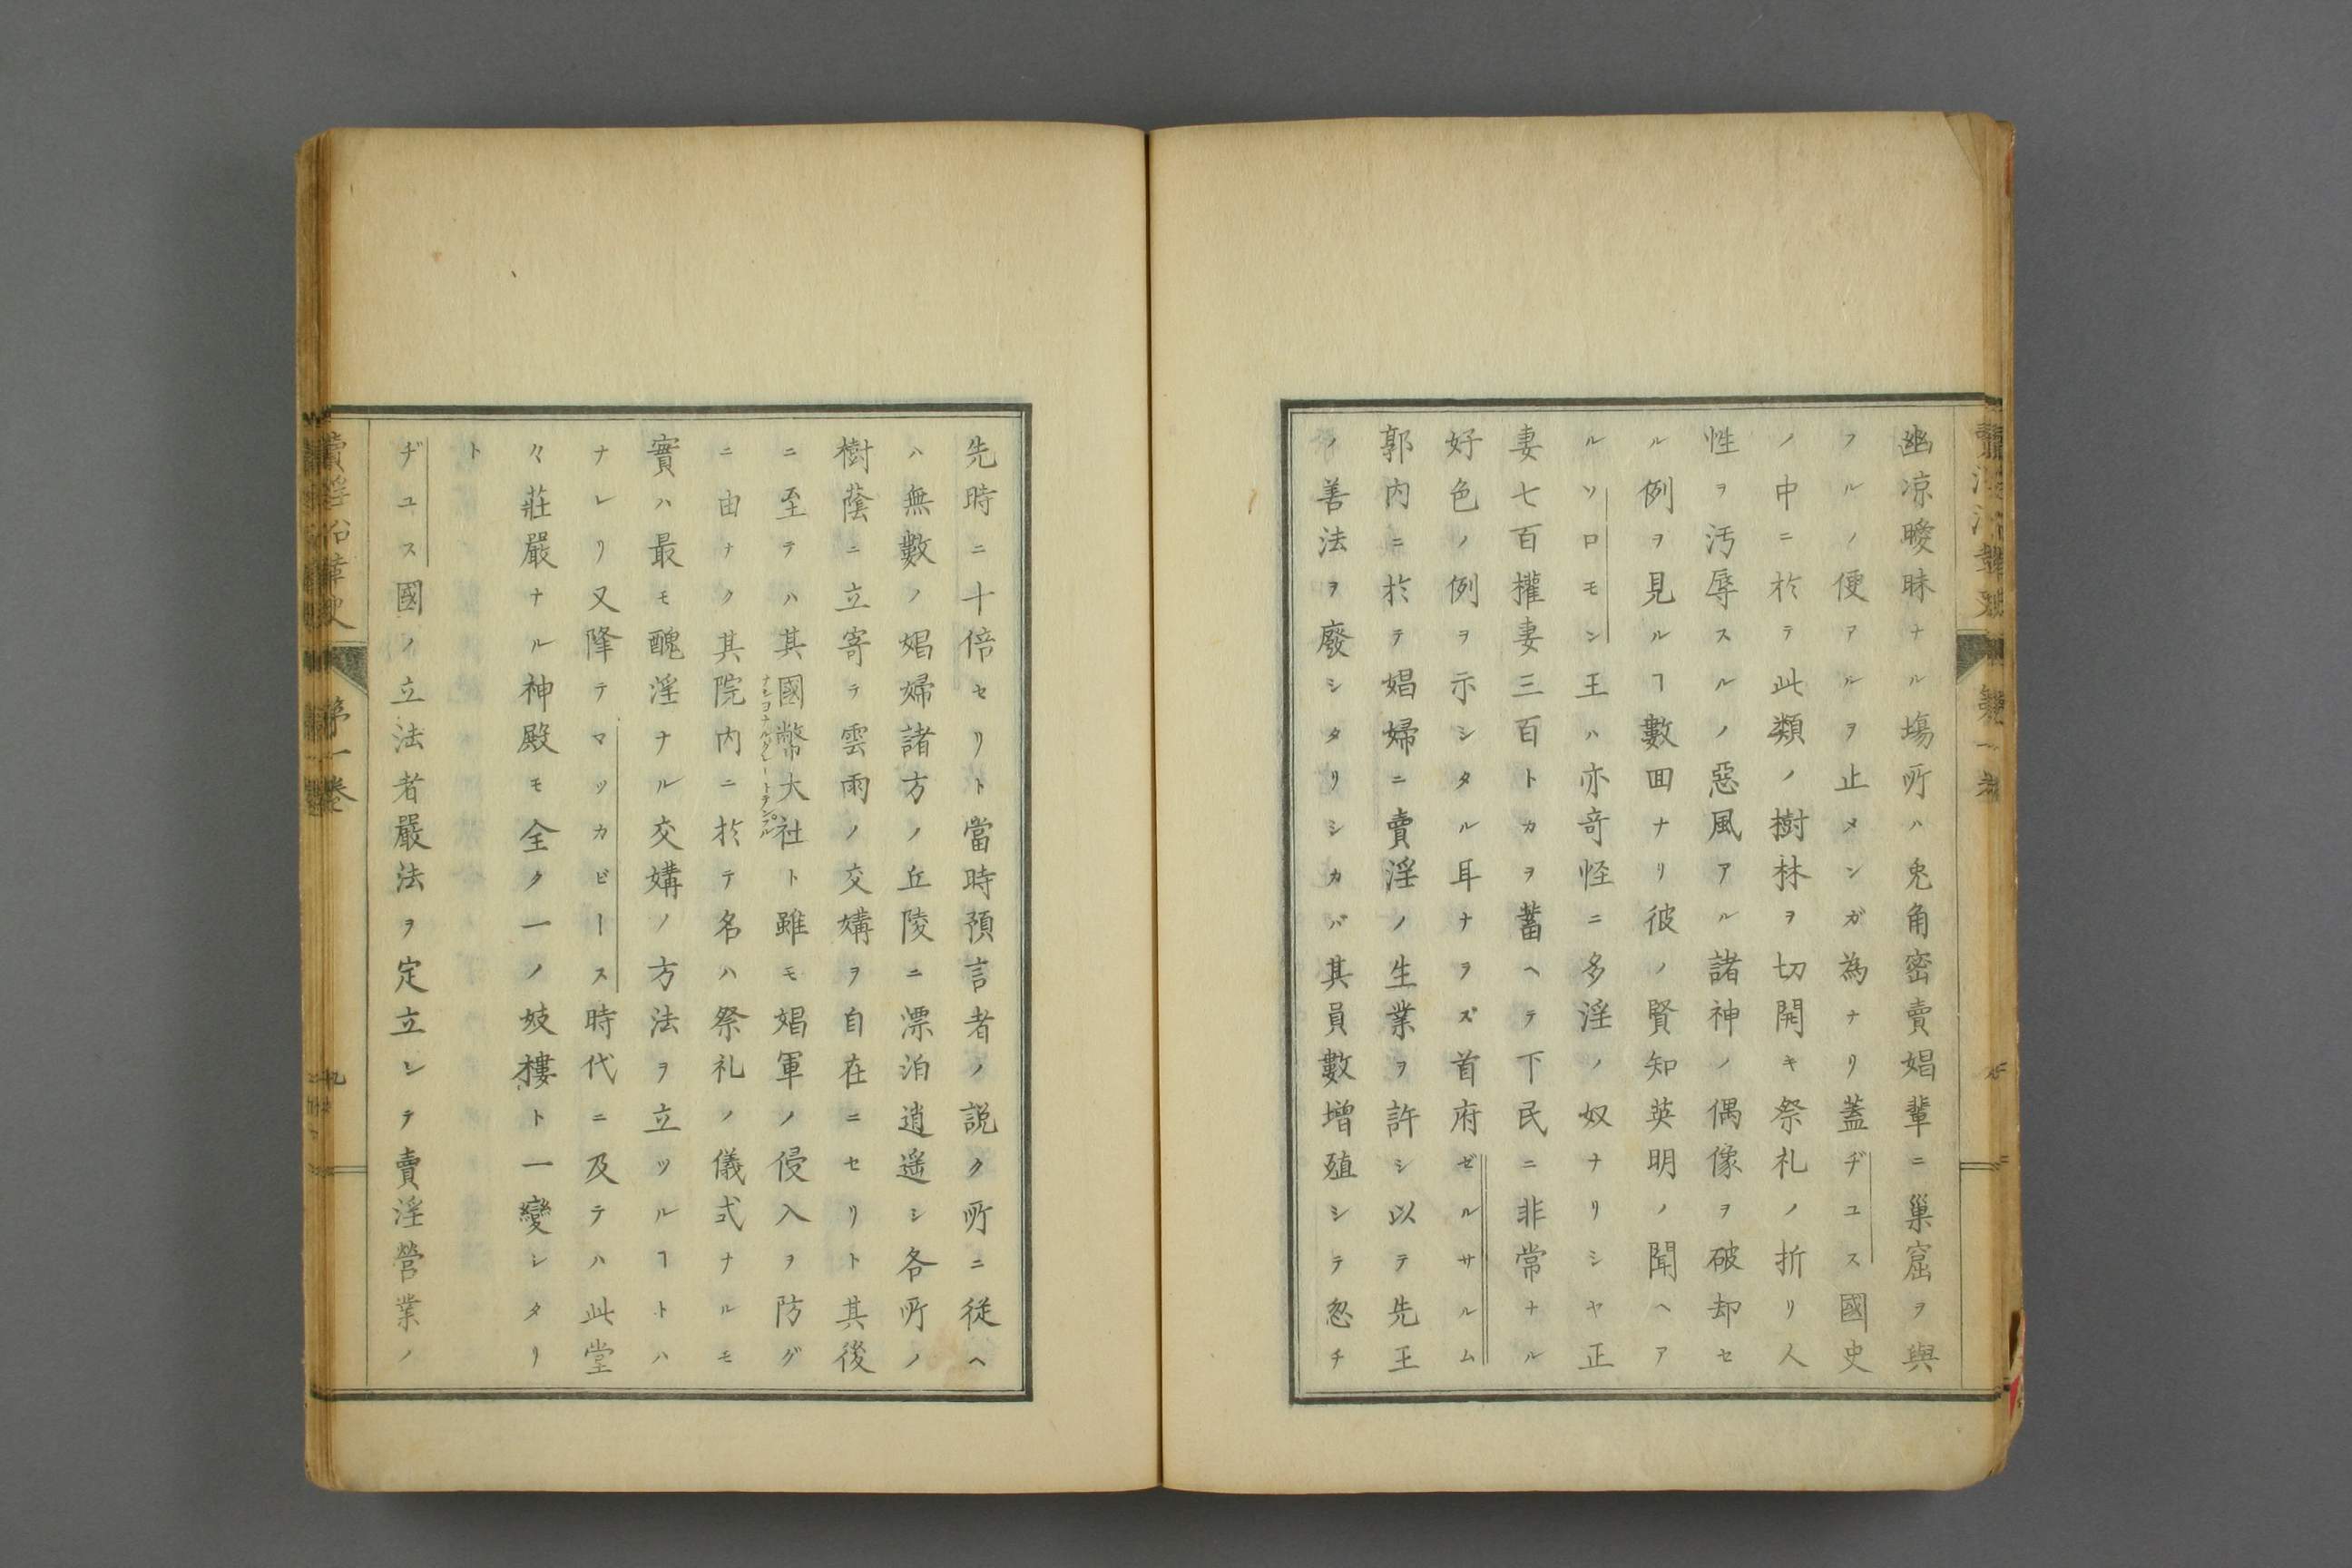 幽凉曖昧ナル塲所ハ兎角密賣娼輩ニ巢窟ヲ與
フルノ便アルヲ止メンガ為ナリ蓋ヂユス國史
ノ中ニ於テ此類ノ樹林ヲ切開キ祭礼ノ折リ人
性ヲ汚辱スルノ惡風アル諸神ノ偶像ヲ破却セ
ル例ヲ見ルヿ數回ナリ彼ノ賢知英明ノ聞ヘア
ルソロモン王ハ亦竒怪ニ多淫ノ奴ナリシヤ正
妻七百權妻三百トカヲ蓄ヘテ下民ニ非常ナル
好色ノ例ヲ示シタル耳ナヲズ首府ゼルサルム
郭内ニ於テ娼婦ニ賣淫ノ生業ヲ許シ以テ先王
ノ善法ヲ廢シタリシカバ其員數增殖シテ忽チ
先時ニ十倍セリト當時預言者ノ説ク所ニ従ヘ
ハ無數ノ娼婦諸方ノ丘陵ニ漂泊逍遥シ各所ノ
樹蔭ニ立寄テ雲雨ノ交媾ヲ自在ニセリト其後
ニ至テハ其國幣大社ト雖モ娼軍ノ侵入ヲ防グ
ナシヨナルグレートテンプル
ニ由ナク其院内ニ於テ名ハ祭礼ノ儀式ナルモ
實ハ最モ醜淫ナル交媾ノ方法ヲ立ツルヿトハ
ナレリ又降テマッカビース時代ニ及テハ此堂
々莊嚴ナル神殿モ全ク一ノ妓樓ト一變シタリ
ト
ヂユス國ノ立法者嚴法ヲ定立シテ賣淫營業ノ
賣淫沿革史
第一卷
九